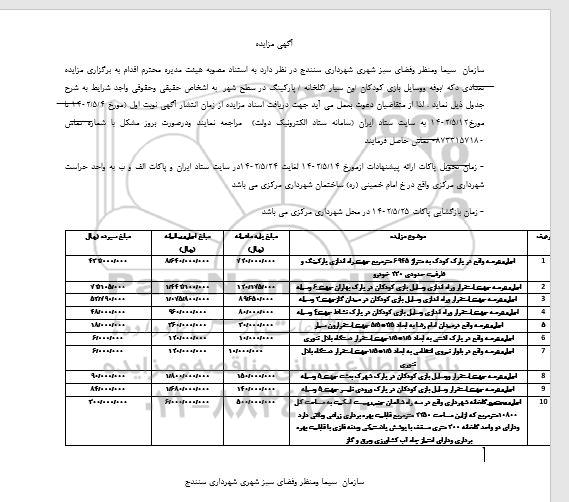 آگهی مزایده
سازمان سیما ومنظر وفضای سبز شهری شهرداری سنندج در نظر دارد به استناد مصوبه هیئت مدیره محترم اقدام به برگزاری مزایده
تعدادی دکه /بوفه ووسایل بازی کودکان /ون سیار /گلخانه / پارکینگ در سطح شهر به اشخاص حقیقی وحقوقی واجد شرایط به شرح
جدول ذیل نماید . لذا از متقاضیان دعوت بعمل می آید جهت دریافت اسناد مزایده از زمان انتشار آگهی نوبت اول (مورخ ۱۴۰۲/۵/۴ تا
مورخ ۱۴۰۲/۵/۱۲ به سایت ستاد ایران (سامانه ستاد الکترونیک دولت) مراجعه نمایند ودرصورت بروز مشکل با شماره تماس
حاصل فرمایند
- زمان تحویل پاکات ارائه پیشنهادات ازمورخ ۱۴۰۲/۵/۱۴ لغایت ۱۴۰۲/۵/۲۴ در سایت ستاد ایران و پاکات الف و ب به واحد حراست
شهرداری مرکزی واقع در خ امام خمینی (ره) ساختمان شهرداری مرکزی می باشد
- زمان بازگشایی پاکات ۱۴۰۲/۵/۲۵ در محل شهرداری مرکزی می باشد
ردیف موضوع مزایده مبلغ پایه ماهانه (ریال) مبلغ اجاره سالانه (ریال) مبلغ سپرده (ریال)
1 اجاره عرصه واقع در پارک کودک به متراژ ۶۹۴۵ مترمربع جهت راه اندازی پارکینگ و ظرفیت حدودی ۲۲۰ خودرو ۷۲۰/۰۰۰/۰۰۰ ۸/۶۴۰/۰۰۰/۰۰۰
2 اجاره عرصه جهت استقرار وراه اندازی وسایل بازی کودکان در پارک بهاران جهت ۶ وسیله
3 اجاره عرصه جهت استقرار وراه اندازی وسایل بازی کودکان در میدان گاز جهت ۳ وسیله
4 اجاره عرصه جهت استقرار وراه اندازی وسایل بازی کودکان در پارک نشاط جهت ۴ وسیله ۸۰/۰۰۰/۰۰۰ ۹۶۰/۰۰۰/۰۰۰ ۴۸/۰۰۰/۰۰۰
5 اجاره عرصه واقع درمیدان امام رضا به ابعاد جهت استقرار ون سیار ۳۰/۰۰۰/۰۰۰ ۳۶۰/۰۰۰/۰۰۰ ۱۸/۰۰۰/۰۰۰
6 اجاره عرصه واقع در پارک به ابعاد جهت استقرار دستگاه بلال تنوری ۱۰/۰۰۰/۰۰۰ ۱۲۰/۰۰۰/۰۰۰ ۶/۰۰۰/۰۰۰
7 اجاره عرصه واقع در بلوار نیروی انتظامی به ابعاد جهت استقرار دستگاه بلال تنوری ۱۰/۰۰۰/۰۰۰ ۱۲۰/۰۰۰/۰۰۰ ۶/۰۰۰/۰۰۰
8 اجاره عرصه جهت استقرار ووسایل بازی کودکان در پارک شهرک بهشت جهت ۵ وسیله ۱۵۰/۰۰۰/۰۰۰ ۱/۸۰۰/۰۰۰/۰۰۰ ۹۰/۰۰۰/۰۰۰
9 اجاره عرصه جهت استقرار وسایل بازی کودکان در پارک ورودی جهت ۵ وسیله ۱۴۰/۰۰۰/۰۰۰ ۱/۶۸۰/۰۰۰/۰۰۰ ۸۴/۰۰۰/۰۰۰
10 اجاره مجتمع گلخانه شهرداری واقع در سه راه شلمان جنب به مساحت کل ۱۰۸۰۰ مترمربع که ازاین مساحت ۲۳۵۰ مترمربع قابلیت بهره برداری زراعی وباغی دارد ودارای دو واحد گلخانه ۲۰۰ متری مسقف با پوشش پلاستیکی وبدنه فلزی با قابلیت بهره برداری ودارای امتیاز چاه آب کشاورزی وبرق و گاز ۵۰۰/۰۰۰/۰۰۰ ۶/۰۰۰/۰۰۰/۰۰۰ ۳۰۰/۰۰۰/۰۰۰
سازمان سیما ومنظر وفضای سبز شهری شهرداری سنندج